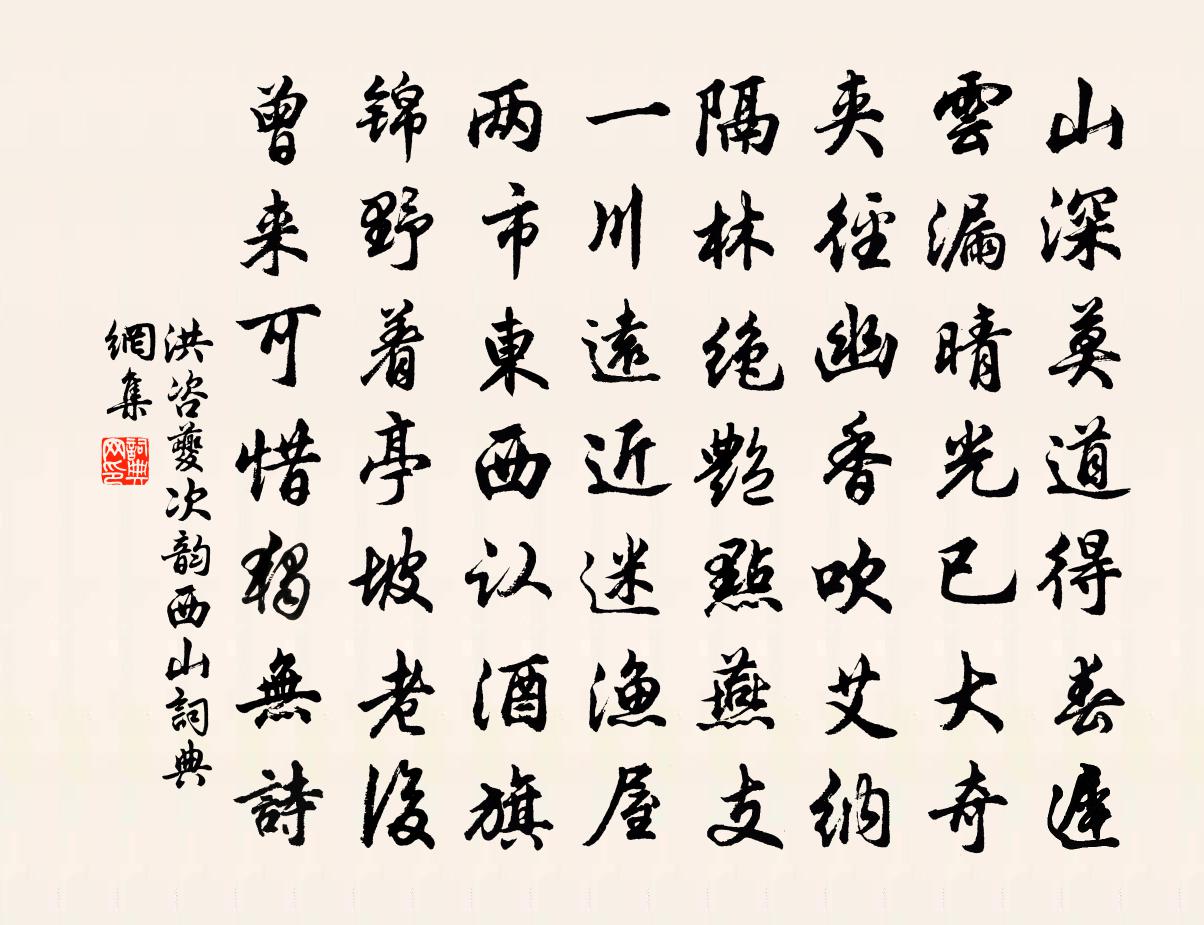 山深莫道得春遲
雲漏晴光已大奇
夹徑幽香吹艾納
隔林绝艷點燕支
一川遠近迷漁屋
两市東西认酒旗
锦野着亭坡老後
曾来可惜獨無詩
洪咨夔次韵西山詞典
網集
詞典网印